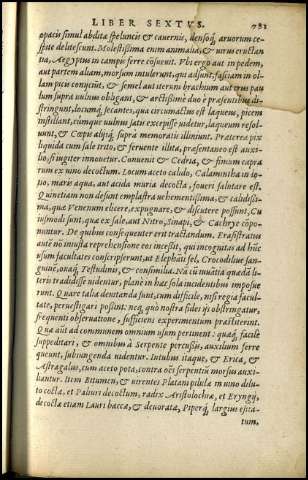 LIBER SEXTVS. 781
opacis simul abditæ speluncis & cauernis, densosq́; aruorum ce-
spite delitescunt. Molestissima enim animalia, & uirus eructan
tia, Aegyptus in campis ferre cōsueuit. Vbi ergo aut in pedem,
aut partem aliam, morsum intulerunt, qui adsunt, fasciam in ol-
lam picis conijciūt, & semel aut iterum brachium aut crus pau
lum supra uulnus obligant, & arctissimè duo è præsentibus di-
stringunt, locumq́; secantes, qua circumactus est laqueus, picem
instillant, eiúmque uulnus satx excepisse uidetur, laqueum resol-
uunt, & Cœpa alijsq́; supra memoratis illinunt. Præterea pix
liquida cum sale trito, & feruente illita, præsentaneo est auxi-
lio, si iugiter innouetur. Conuenit & Cedria, & fimum capra
rum ex uino decoctum. Locum aceto calido, Calamintha in lo-
tio, maris aqua, aut acida muria decocta, foueri salutare est.
Quinetiam non desunt emplastra uehementissima, & calidissi-
ma, quæ Venenum elicere, expugnare, & discutere possint. Cu
iusmodi sunt, quæ ex sale, aut Nitro, Sinapi, & Cachrye cōpo-
nuntur. De quibus consequenter erit tractandum. Erasistratus
autē nō iniusta reprehensione eos incessit, qui incognitas ad hūc
usum facultates conscripserunt, ut Elephāti fel, Crocodilue san-
guine, ouaq́; Testudinis, & consimilia. Nā cū iuuātia quædā li-
teris tradidisse uidentur, planè in hac sola incidentibus imposue
runt. Quare talia deuitanda sunt, cum difficile, nisi regia facul-
tate, peruestigari possint: neq́; quò nostra fides ijs obstringatur,
frequenti obseruatione, sufficiens experimentum præstiterint.
Quæ aūt ad communem omnium usum perinent: quæq́; facilè
suppeditari, & omnibus à Serpente percussis, auxilium ferre
queunt, subiungenda uidentur. Intubus itaque, & Erica, &
Astragalus, cum aceto pota, contra oēs serpentiū morsus auxi-
liantur. Item Bitumen, & uirentes Platani pilulæ in uino dilu-
to coctæ, et Paliuri decoctum, radix Aristolochiæ, et Eryngij,
decoctæ etiam Lauri baccæ, & deuoratæ, Piperq́; largius esita-
tum,